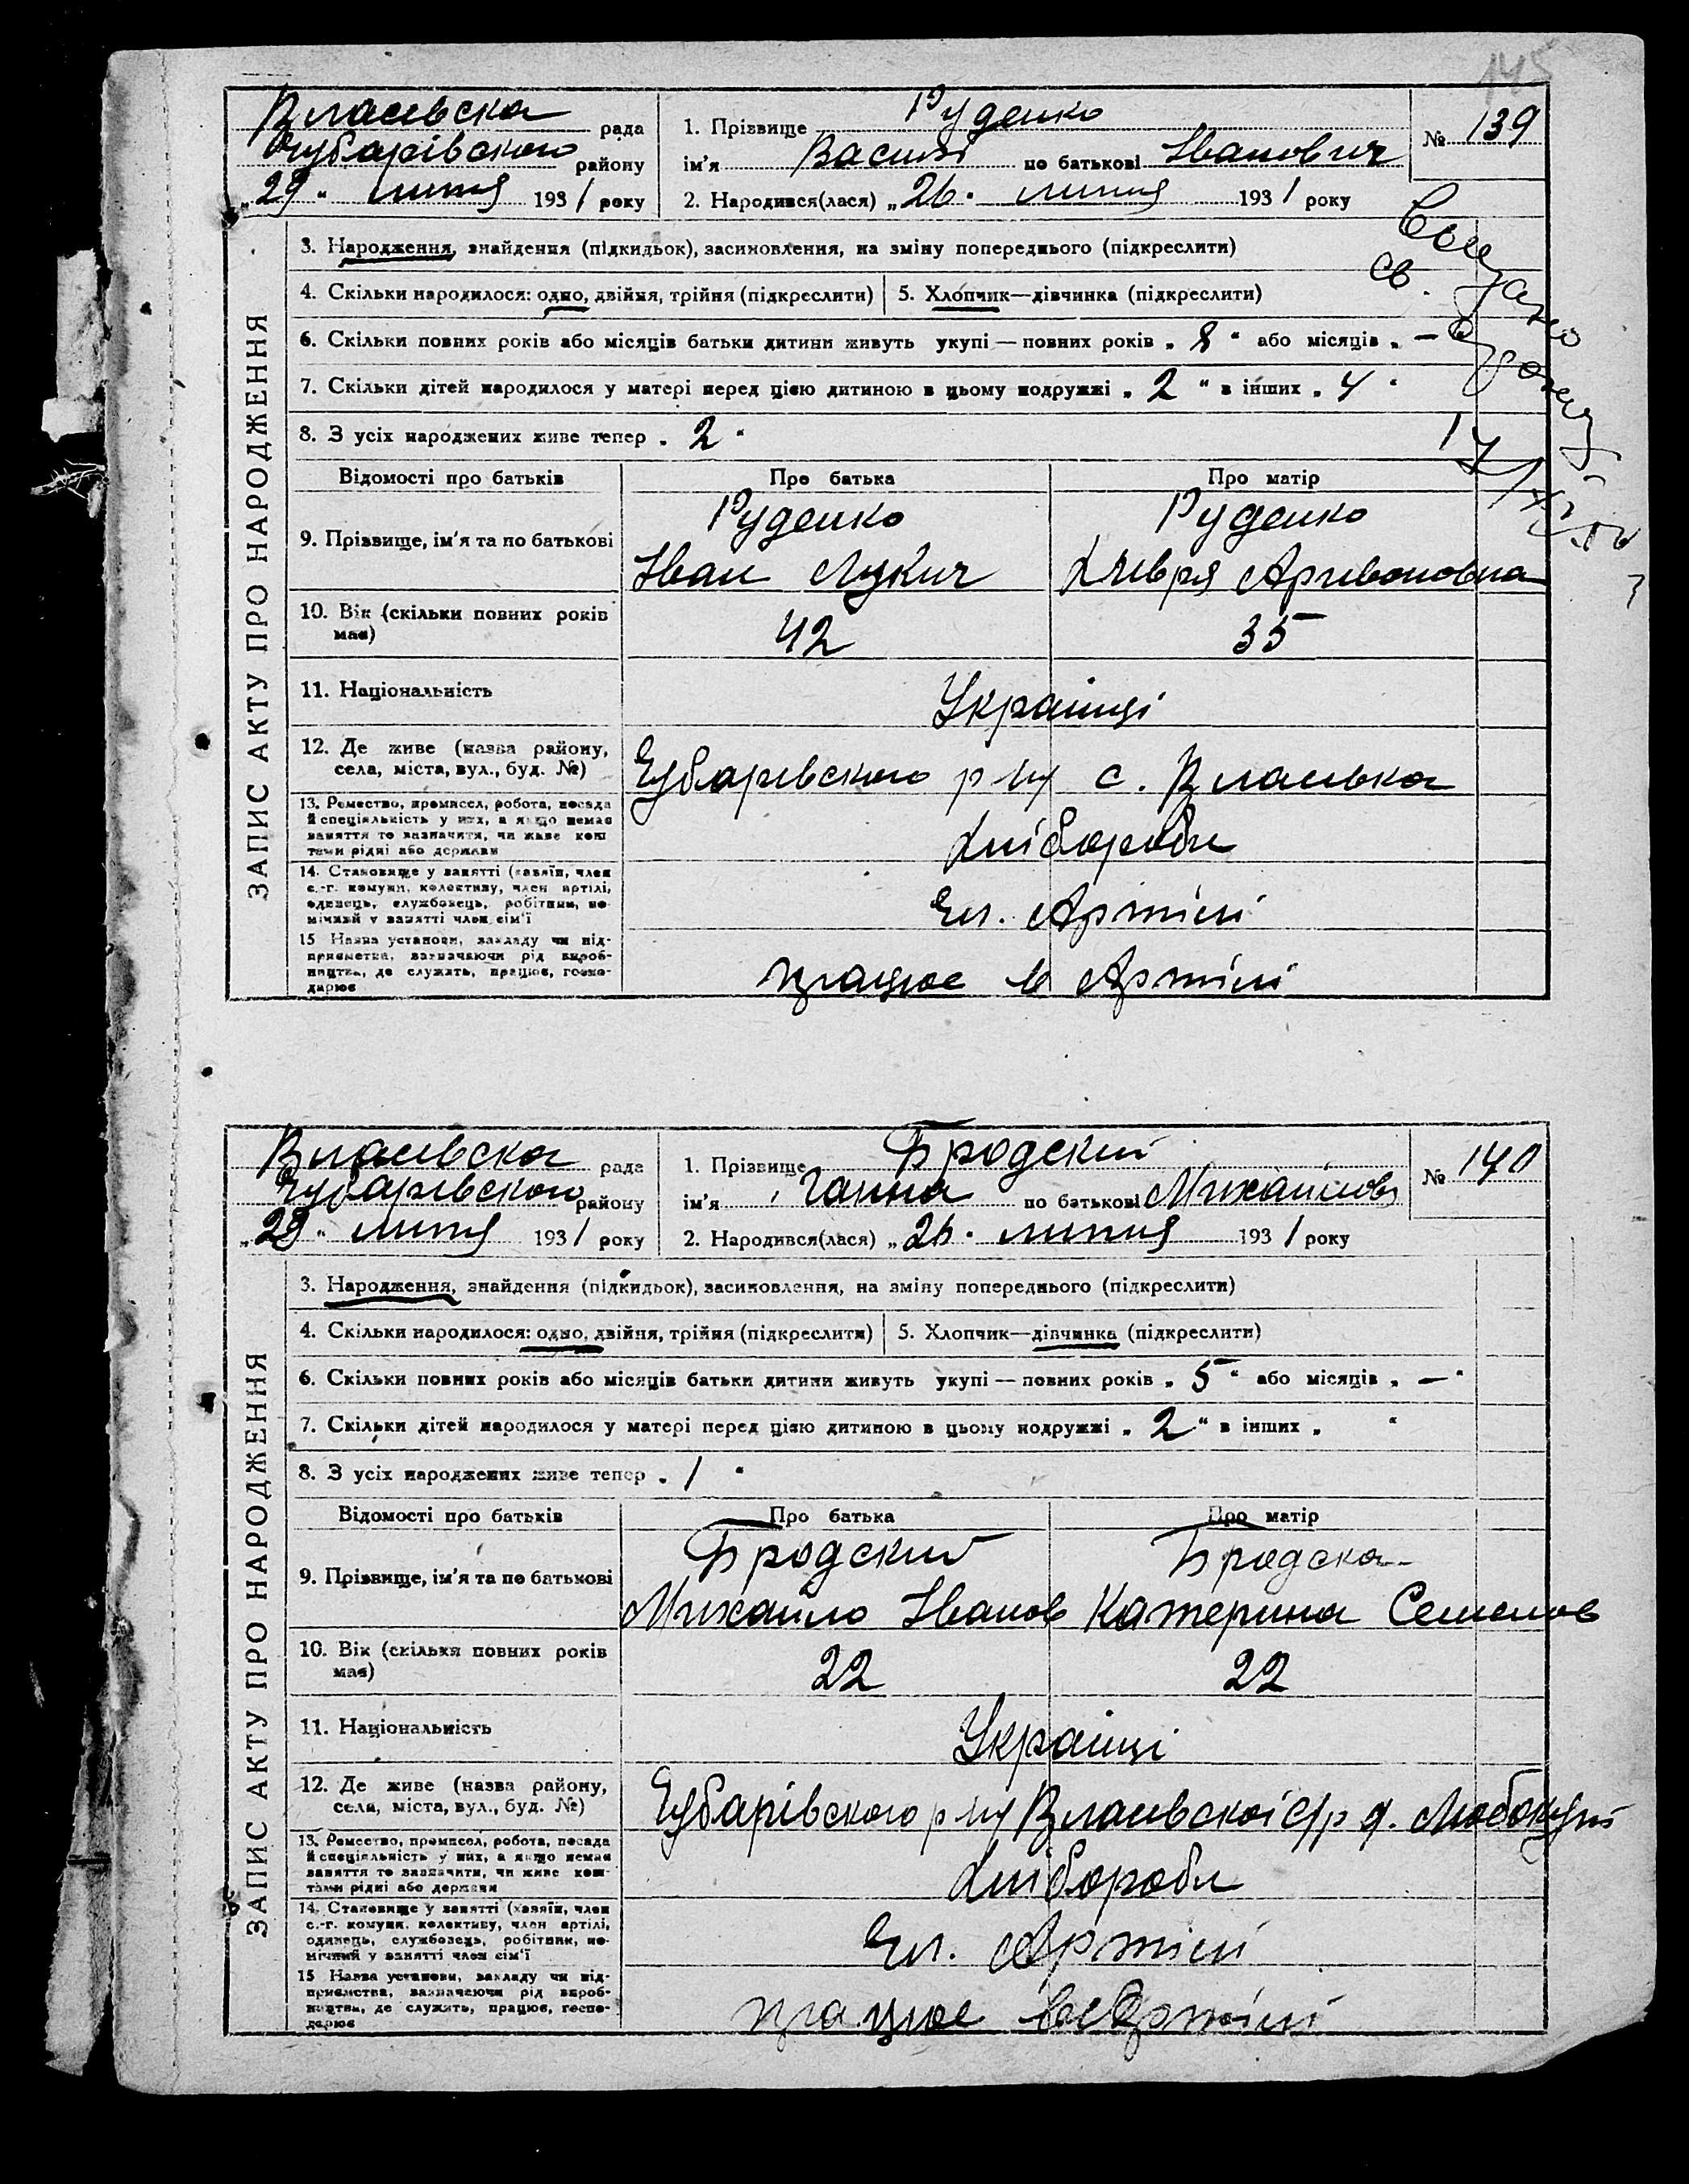 145
Власивска рада
Чубарівского району
„29“ липня 1931 року
1. Прізвище Руденко
ім'я Василь по батькові Іванович
2. Народився(лася) „26“ липня 1931 року
№ 139
Выдано
св.
ЗАПИС АКТУ ПРО НАРОДЖЕННЯ
3. Народження, знайдення (підкидьок), засиновлення, на зміну попереднього (підкреслити)
4. Скільки народилося: одно, двійня, трійня (підкреслити)
5. Хлопчик—дівчинка (підкреслити)
6. Скільки повних років або місяців батьки дитини живуть укупі — повних років „8“ або місяців „—
7. Скільки дітей народилося у матері перед цією дитиною в цьому подружжі „2“ в інших „4“
8. З усіх народжених живе тепер „2“
Відомості про батьків Про батька Про матір
9. Прізвище, ім'я та по батькові
Руденко Руденко
Іван Лукич Хивря Аривоновна
10. Вік (скільки повних років має)
42 35
11. Національність
Українці
12. Де живе (назва району, села, міста, вул., буд. №)
Чубарівского р-ну с. Власивка
13. Ремество, промисел, робота, посада й спеціяльність у них, а якщо немає заняття то зазначити, чи живе коштами рідні або держави
Хлібороби
14. Становище у занятті (хазяїн, член с.-г. комуни, колективу, член артілі, одинець, службовець, робітник, помічний у занятті член сім'ї
Чл. Артілі
15 Назва установи, закладу чи підприємства, зазначаючи рід виробництва, де служить, працює, господарює
працює в Артілі
Власивска рада
Чубарівского району
„29“ липня 1931 року
1. Прізвище Бродский
ім'я Ганна по батькові Михайлов
2. Народився(лася) „26“ липня 1931 року
№ 140
ЗАПИС АКТУ ПРО НАРОДЖЕННЯ
3. Народження, знайдення (підкидьок), засиновлення, на зміну попереднього (підкреслити)
4. Скільки народилося: одно, двійня, трійня (підкреслити)
5. Хлопчик—дівчинка (підкреслити)
6. Скільки повних років або місяців батьки дитини живуть укупі — повних років „5“ або місяців „—“
7. Скільки дітей народилося у матері перед цією дитиною в цьому подружжі „2“ в інших „ “
8. З усіх народжених живе тепер „1“
Відомості про батьків Про батька Про матір
9. Прізвище, ім'я та по батькові
Бродский Бродска
Михаило Іванов Катерина Семенов
10. Вік (скільки повних років має)
22 22
11. Національність
Українці
12. Де живе (назва району, села, міста, вул., буд. №)
Чубарівского р-ну Власивскоі с/р
13. Ремество, промисел, робота, посада й спеціяльність у них, а якщо немає заняття то зазначити, чи живе коштами рідні або держави
Хлібороби
14. Становище у занятті (хазяїн, член с.-г. комуни, колективу, член артілі, одинець, службовець, робітник, помічний у занятті член сім'ї
Чл. Артілі
15 Назва установи, закладу чи підприємства, зазначаючи рід виробництва, де служить, працює, господарює
працює в Артілі